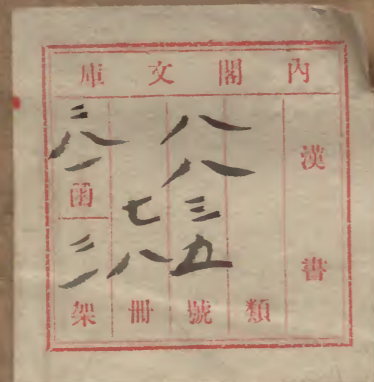 內閣文庫
漢書
類
八八三五號
七八冊
三八一函
三架